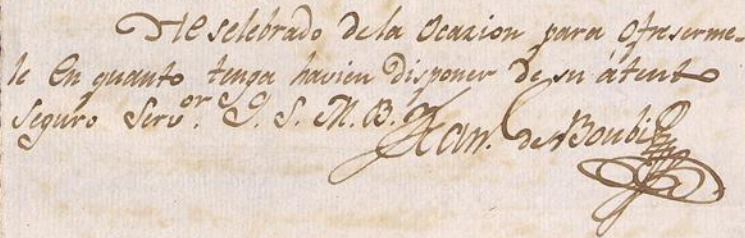 He selebrado dela Ocazion para ofreserme-
le En quanto tenga havien Disponer De su atento
Seguro Serv.or Q. S. M. B.
Xav. de Boubi